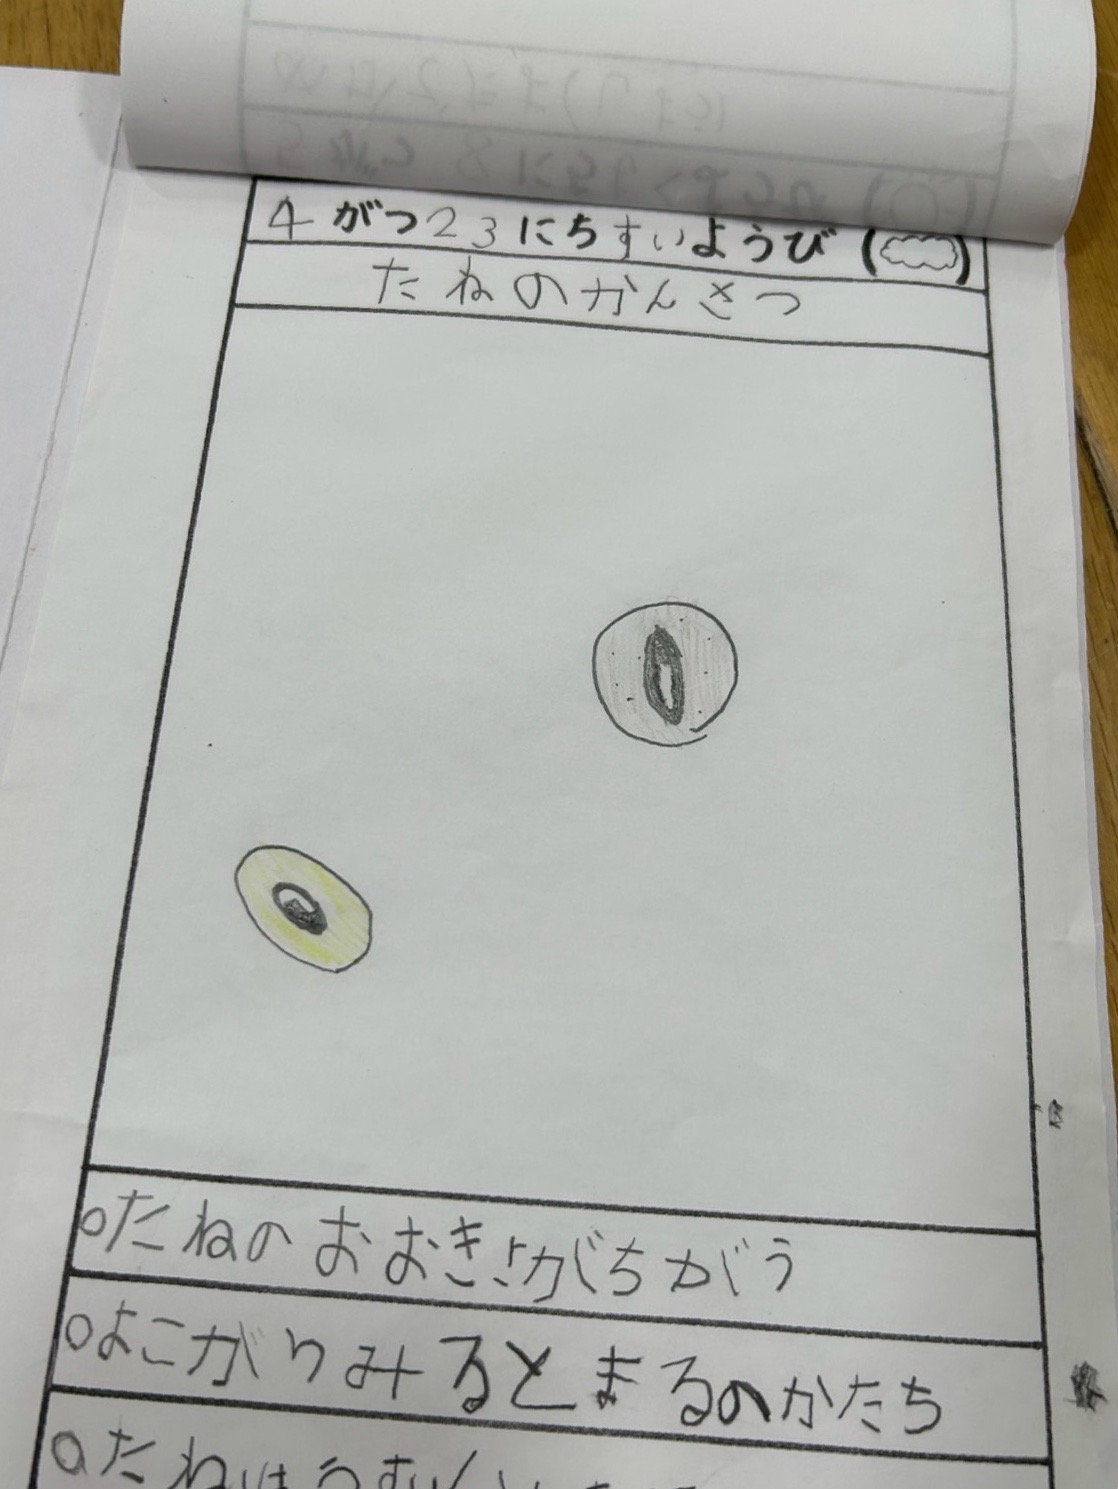 4がつ23にちすいようび( )
たねのかんさつ
oたねのおおきさがちがう
oよこがりみるとまるのかたち
oたねはうすい